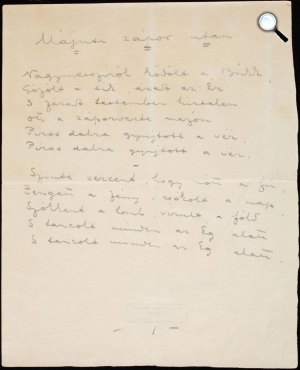 Májusi zápor után.
Nagymessziről ködölt a Bükk.
Gőzölt a rét, áradt az Ér
S fáradt testemben hirtelen
ott a záporverte mezőn
Piros dalra gyujtott a vér.
Piros dalra gyujtott a vér.
Szinte sercent, hogy nőtt a fű,
Zengett a fény, csókolt a nap
Szökkent a lomb, virult a föld
S táncolt minden az Ég alatt
S táncolt minden az Ég alatt.
- 1 -